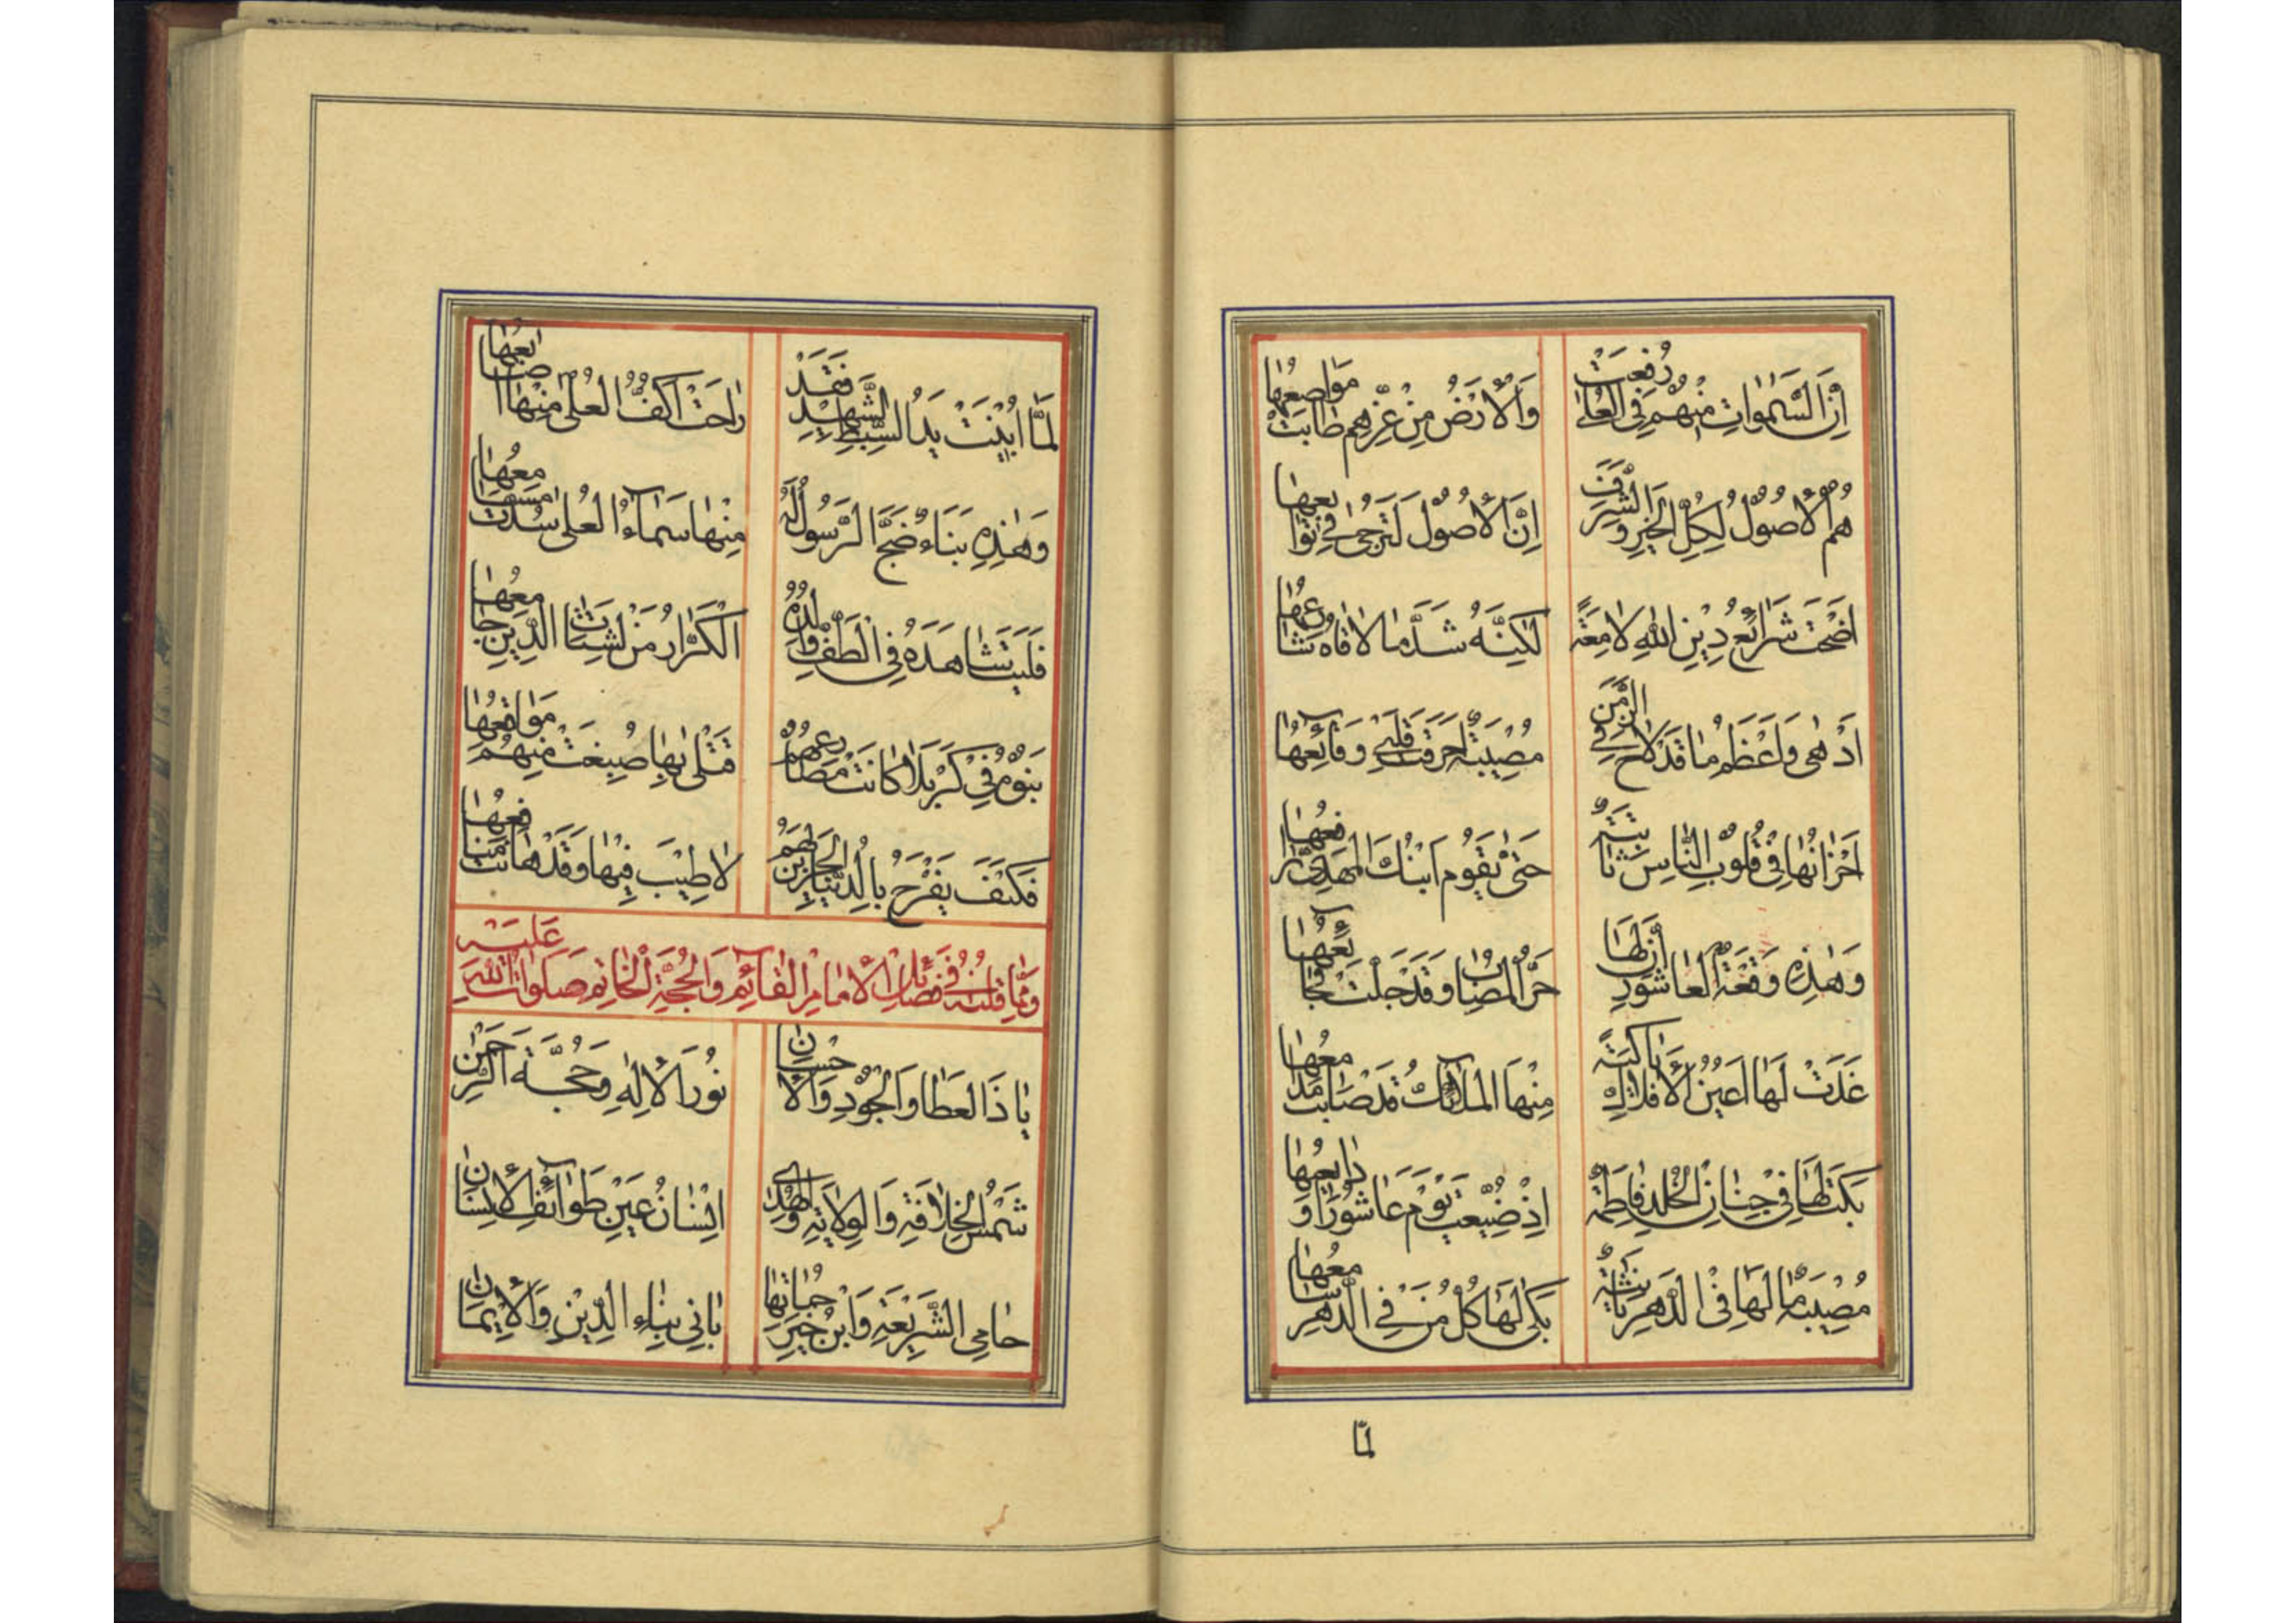 اِنَّ السَّمٰوَاتِ مِنْهُمْ فِی العُلٰی رُفِعَتْ وَالْاَرْضُ مِنْ عِزِّهِم طابَتْ مَوَاضِعُهٰا
هُمُ الْاُصُوْلُ لِكُلِّ الخَيْرِ وَالشَّرَفِ اِنَّ الْاُصُوْلَ لَتَرجیٰ فی تَوٰابِعِهٰا
اَضْحَتْ شَرائِعُ دِيْنِ اللهِ لامِعَةً لٰكِنَّهُ شَدَّ ما لاقاهُ شارِعُهٰا
اَدْهٰی وَاَعْظَمُ مٰا قَدْ لاحَ فِی الزَّمَنِ مُصِيْبَةٌ اَحْرَقَتْ قَلْبِی وَقائِعُهٰا
اَحْزانُهٰا فِی قُلُوْبِ النّٰاسِ ثٰابِتَةٌ حَتّٰی يَقُوْمَ ابْنُكَ المَهْدِیُّ رافِعُهٰا
وَهٰذِهِ وَقْعَةُ العٰاشُوْرِ اِنَّ لَهٰا حَرَّ المُصٰابِ وَقَدْ جَلَّتْ فَجٰائِعُهٰا
غَدَتْ لَهٰا اَعْيُنُ الْاَفْلاكِ بٰاكِيَةً مِنْهَا المَلائِكُ قَدْ صٰابَتْ مَدٰامِعُهٰا
بَكَتْ لَهٰا فِی جِنٰانِ الخُلْدِ فاطِمَةٌ اِذْ ضُيِّعَتْ يَوْمَ عاشُوْرا وَدٰايِعُهٰا
مُصِيْبَةٌ مٰا لَهٰا فِی الدَّهْرِ ثٰانِيَةٌ بَكیٰ لَهٰا كُلُّ مَنْ فِی الدَّهْرِ سٰامِعُهٰا
لمّا
لَمَّا اُبِيْنَتْ يَدُ السِّبْطِ الشَّهِيْدِ فَقَدْ رٰاحَتْ اَكُفُّ العُلیٰ مِنْهٰا اَصٰابِعُهٰا
وَهٰذِهِ بَنَاءٌ ضَجَّ الرَّسُوْلُ لَهُ مِنْهٰا سَمآءُ العُلیٰ سُدَّتْ مَسٰامِعُهٰا
فَلَيْتَ شٰاهَدَهُ فِی الطَّفِّ وٰالِدُهُ الكَرّٰارُ مَنْ لِشَتٰاتِ الدِّيْنِ جٰامِعُهٰا
بَنُوْهُ فِی كَرْبَلا كانَتْ مَصٰارِعُهُمْ قَتْلیٰ بِهٰا صُبِغَتْ مِنْهُمْ مَوٰاقِعُهٰا
فَكَيْفَ يَفْرَحُ بِالدُّنْيٰا حَزِيْنٌ لَهُمْ لا طِيْبَ فِيْهٰا وَقَدْ هٰانَتْ مَنٰافِعُهٰا
وَمِمّٰا قُلْتُهُ فِی فَضٰائِلِ الْاِمٰامِ القٰآئِمِ وَالحُجَّةِ الخٰاتِمِ صَلَوٰاتُ اللهِ عَلَيْهِ
يٰا ذَا العَطٰا وَالجُوْدِ وَالْاِحْسٰانِ نُوْرَ الْاِلٰهِ وَحُجَّةَ الرَّحْمٰنِ
شَمْسُ الخِلافَةِ وَالوِلايَةِ وَالهُدیٰ اِنْسٰانُ عَيْنِ طَوٰآئِفِ الْاِنْسٰانِ
حٰامِی الشَّرِيْعَةِ وَابْنُ خَيْرِ حُمٰاتِهٰا بٰانِی بِنٰاءِ الدِّيْنِ وَالْاِيْمٰانِ